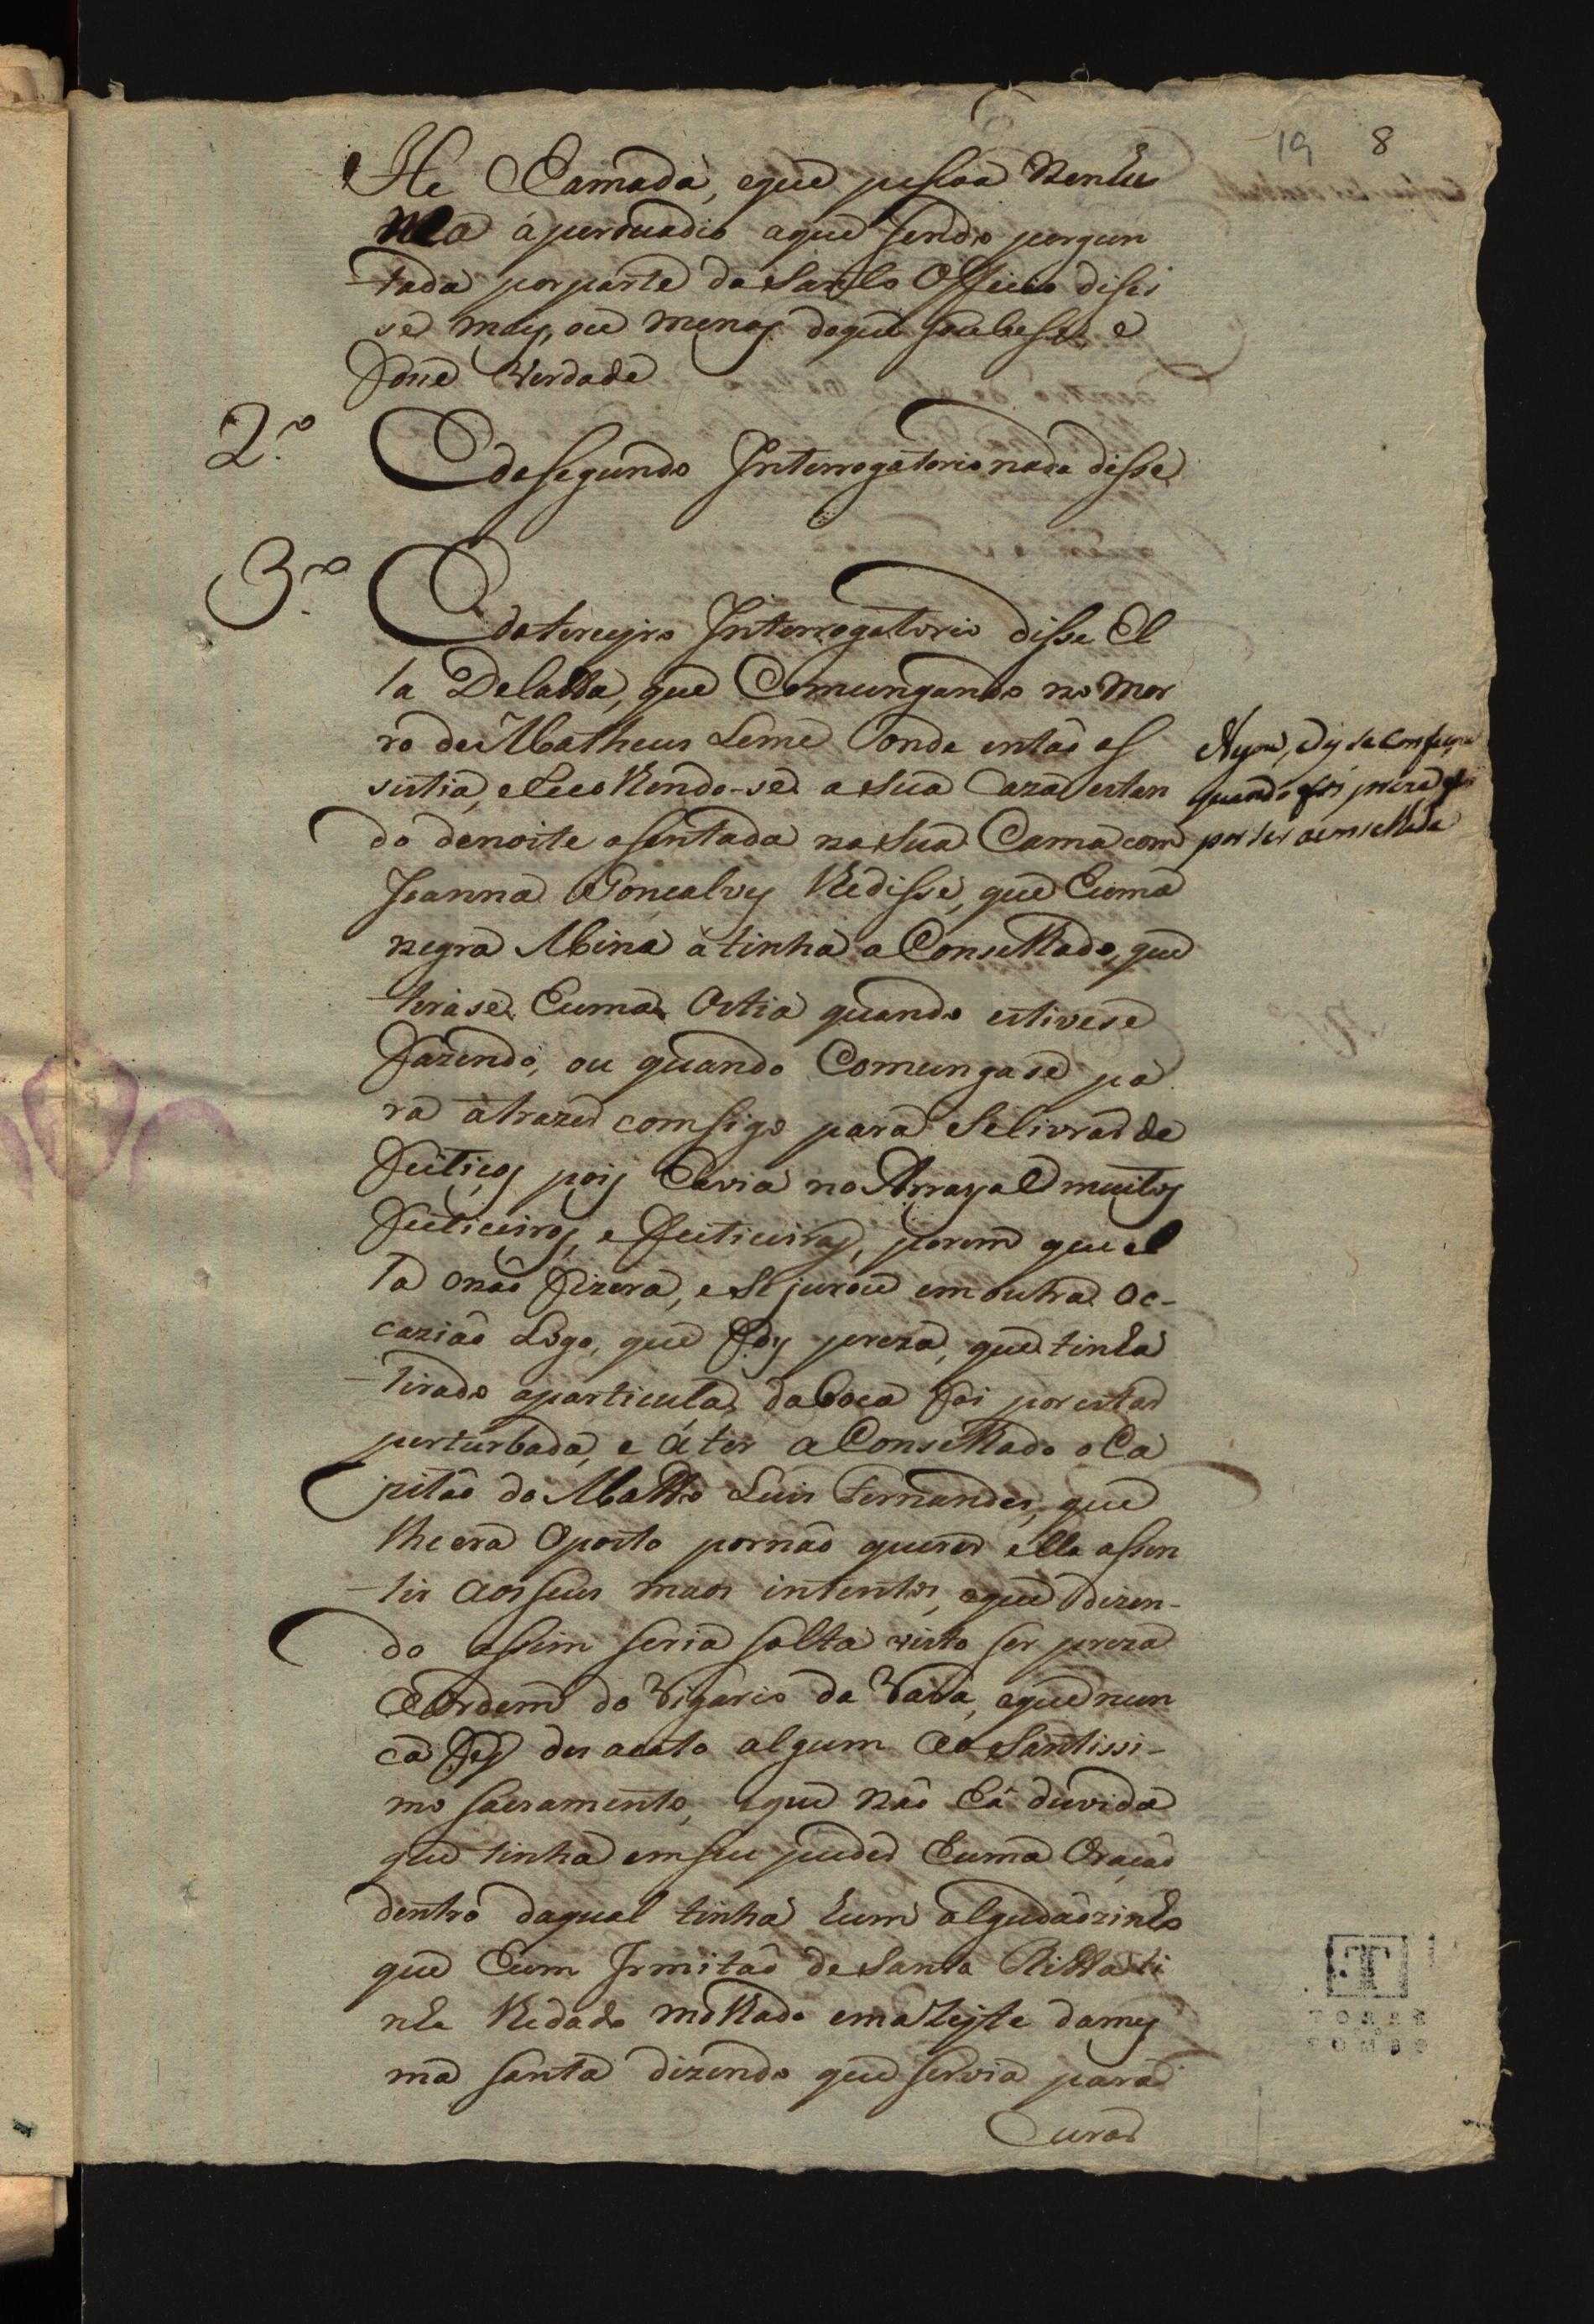 19 8
He Camada, eque pesoa Nenhu
Ma á perduadio aque sendo pergun
tada por parte do Santo Officio dises
se mays, ou menos doque soubese, e
Fone Verdade
2.º E do segundo Interrogatorio nada disse
3.º E do terceyro Interrogatorio disse El
la Delatta, que Comungando no Mor
ro de Matheus Leme onde entaõ as
sistia, e Recolhendo-se a sua Caza estan
do denoite asentada na sua Cama com
Joanna Gonçalves lhe disse, que huma
negra Mina a tinha aConselhado, que
tirase huma Ostia quando estivese
Fazendo, ou quando Comungase pa
ra atrazer comsigo para Selivrar de
Feitiços pois havia no Arrayal muitos
Feiticeiros, e Feiticeiras, porem que el
la o naõ Fizera, e se jurou em outra oc-
caziaõ Logo, que Foy preza, que tinha
tirado aparticula da boca foi por estar
perturbada, e á ter aConselhado o Ca
pitaõ do Matto Luis Fernandes, que
lhe era Oposto por naõ querer ella assen
tir aos seus maos intentos, eque dizen-
do assim seria solta visto ser preza
a Ordem do Vigario da Vara, eque nun
ca Fes desacato algum ao Santissi-
mo sacramento, eque naõ há duvida
que tinha em seu poder huma Oraçaõ
dentro daqual tinha hum algudaõzinho
que hum Irmitaõ de Santa Ritta ti
nha lhe dado molhado em aZeyte da mes
ma santa dizendo que servia para
Curar
quando foi preza
por ser aconselhada
TT
TORRE
TOMBO